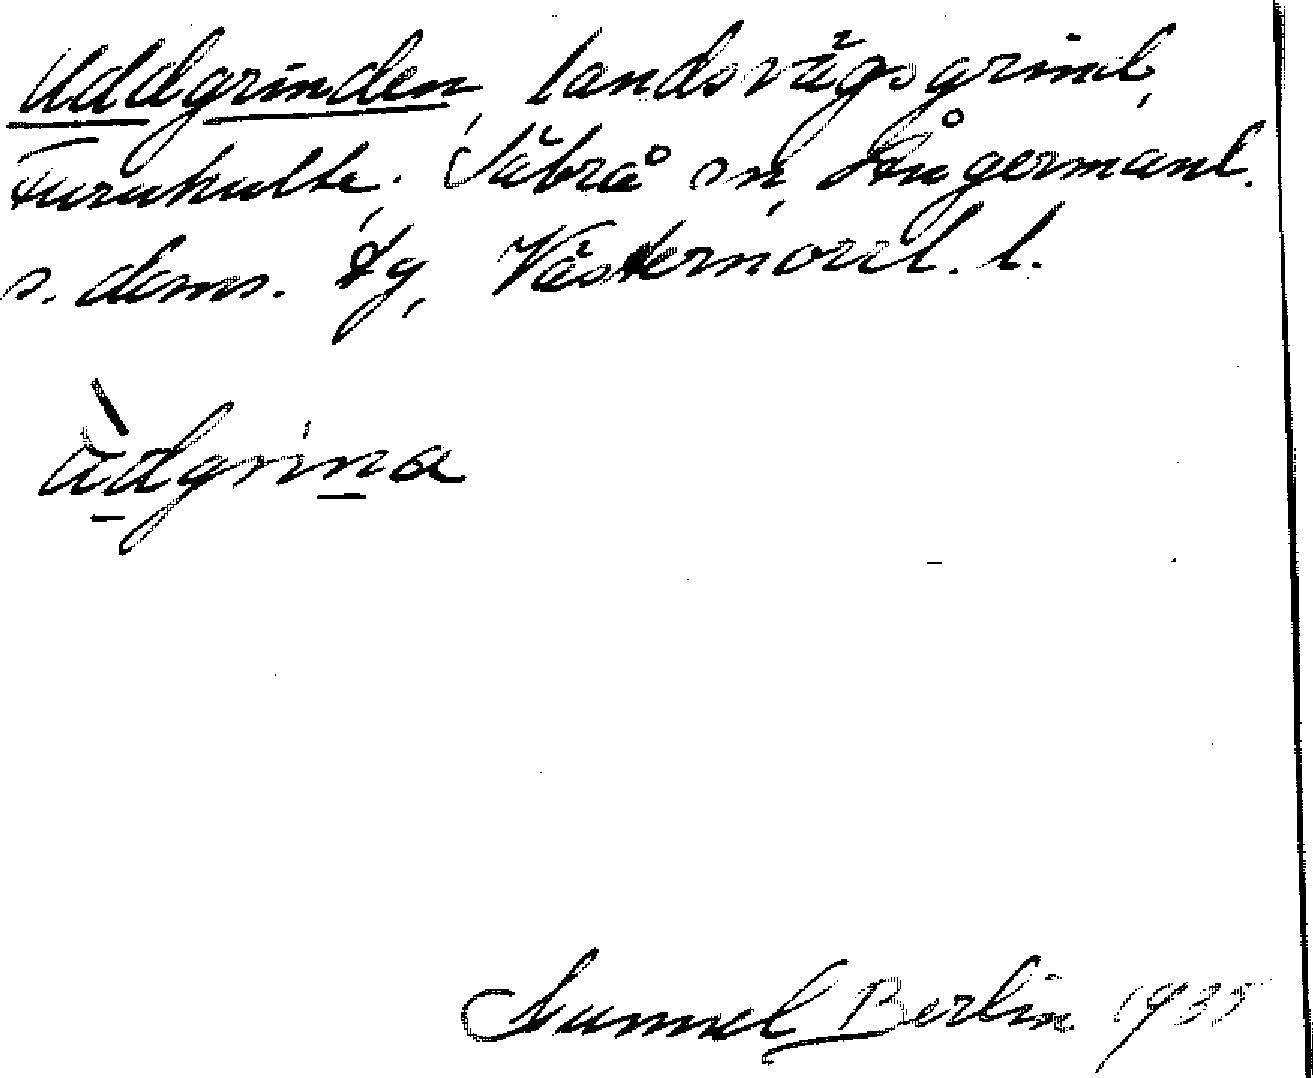 Uddgrinden, landsvägsgrind,
Furuhulte. Säbrå sn, Ångermanl.
s. doms. fg, Västernorrl. l.
ùdgrina
Samuel Berlin 1935